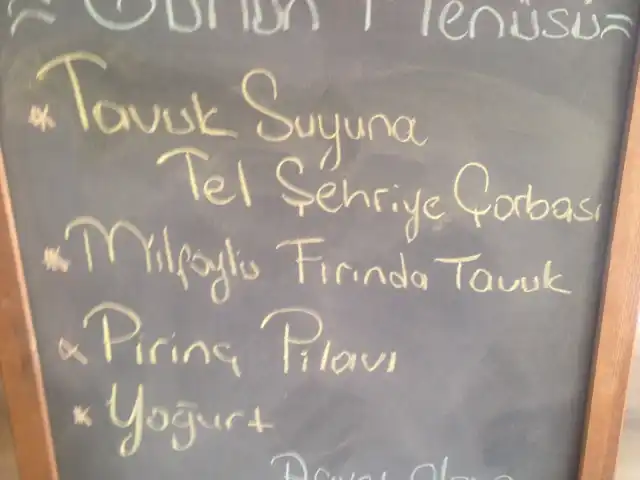 Günün Menüsü
Tavuk Suyuna
Tel Şehriye Çorbası
Milföylü Fırında Tavuk
Pirinç Pilavı
Yoğurt